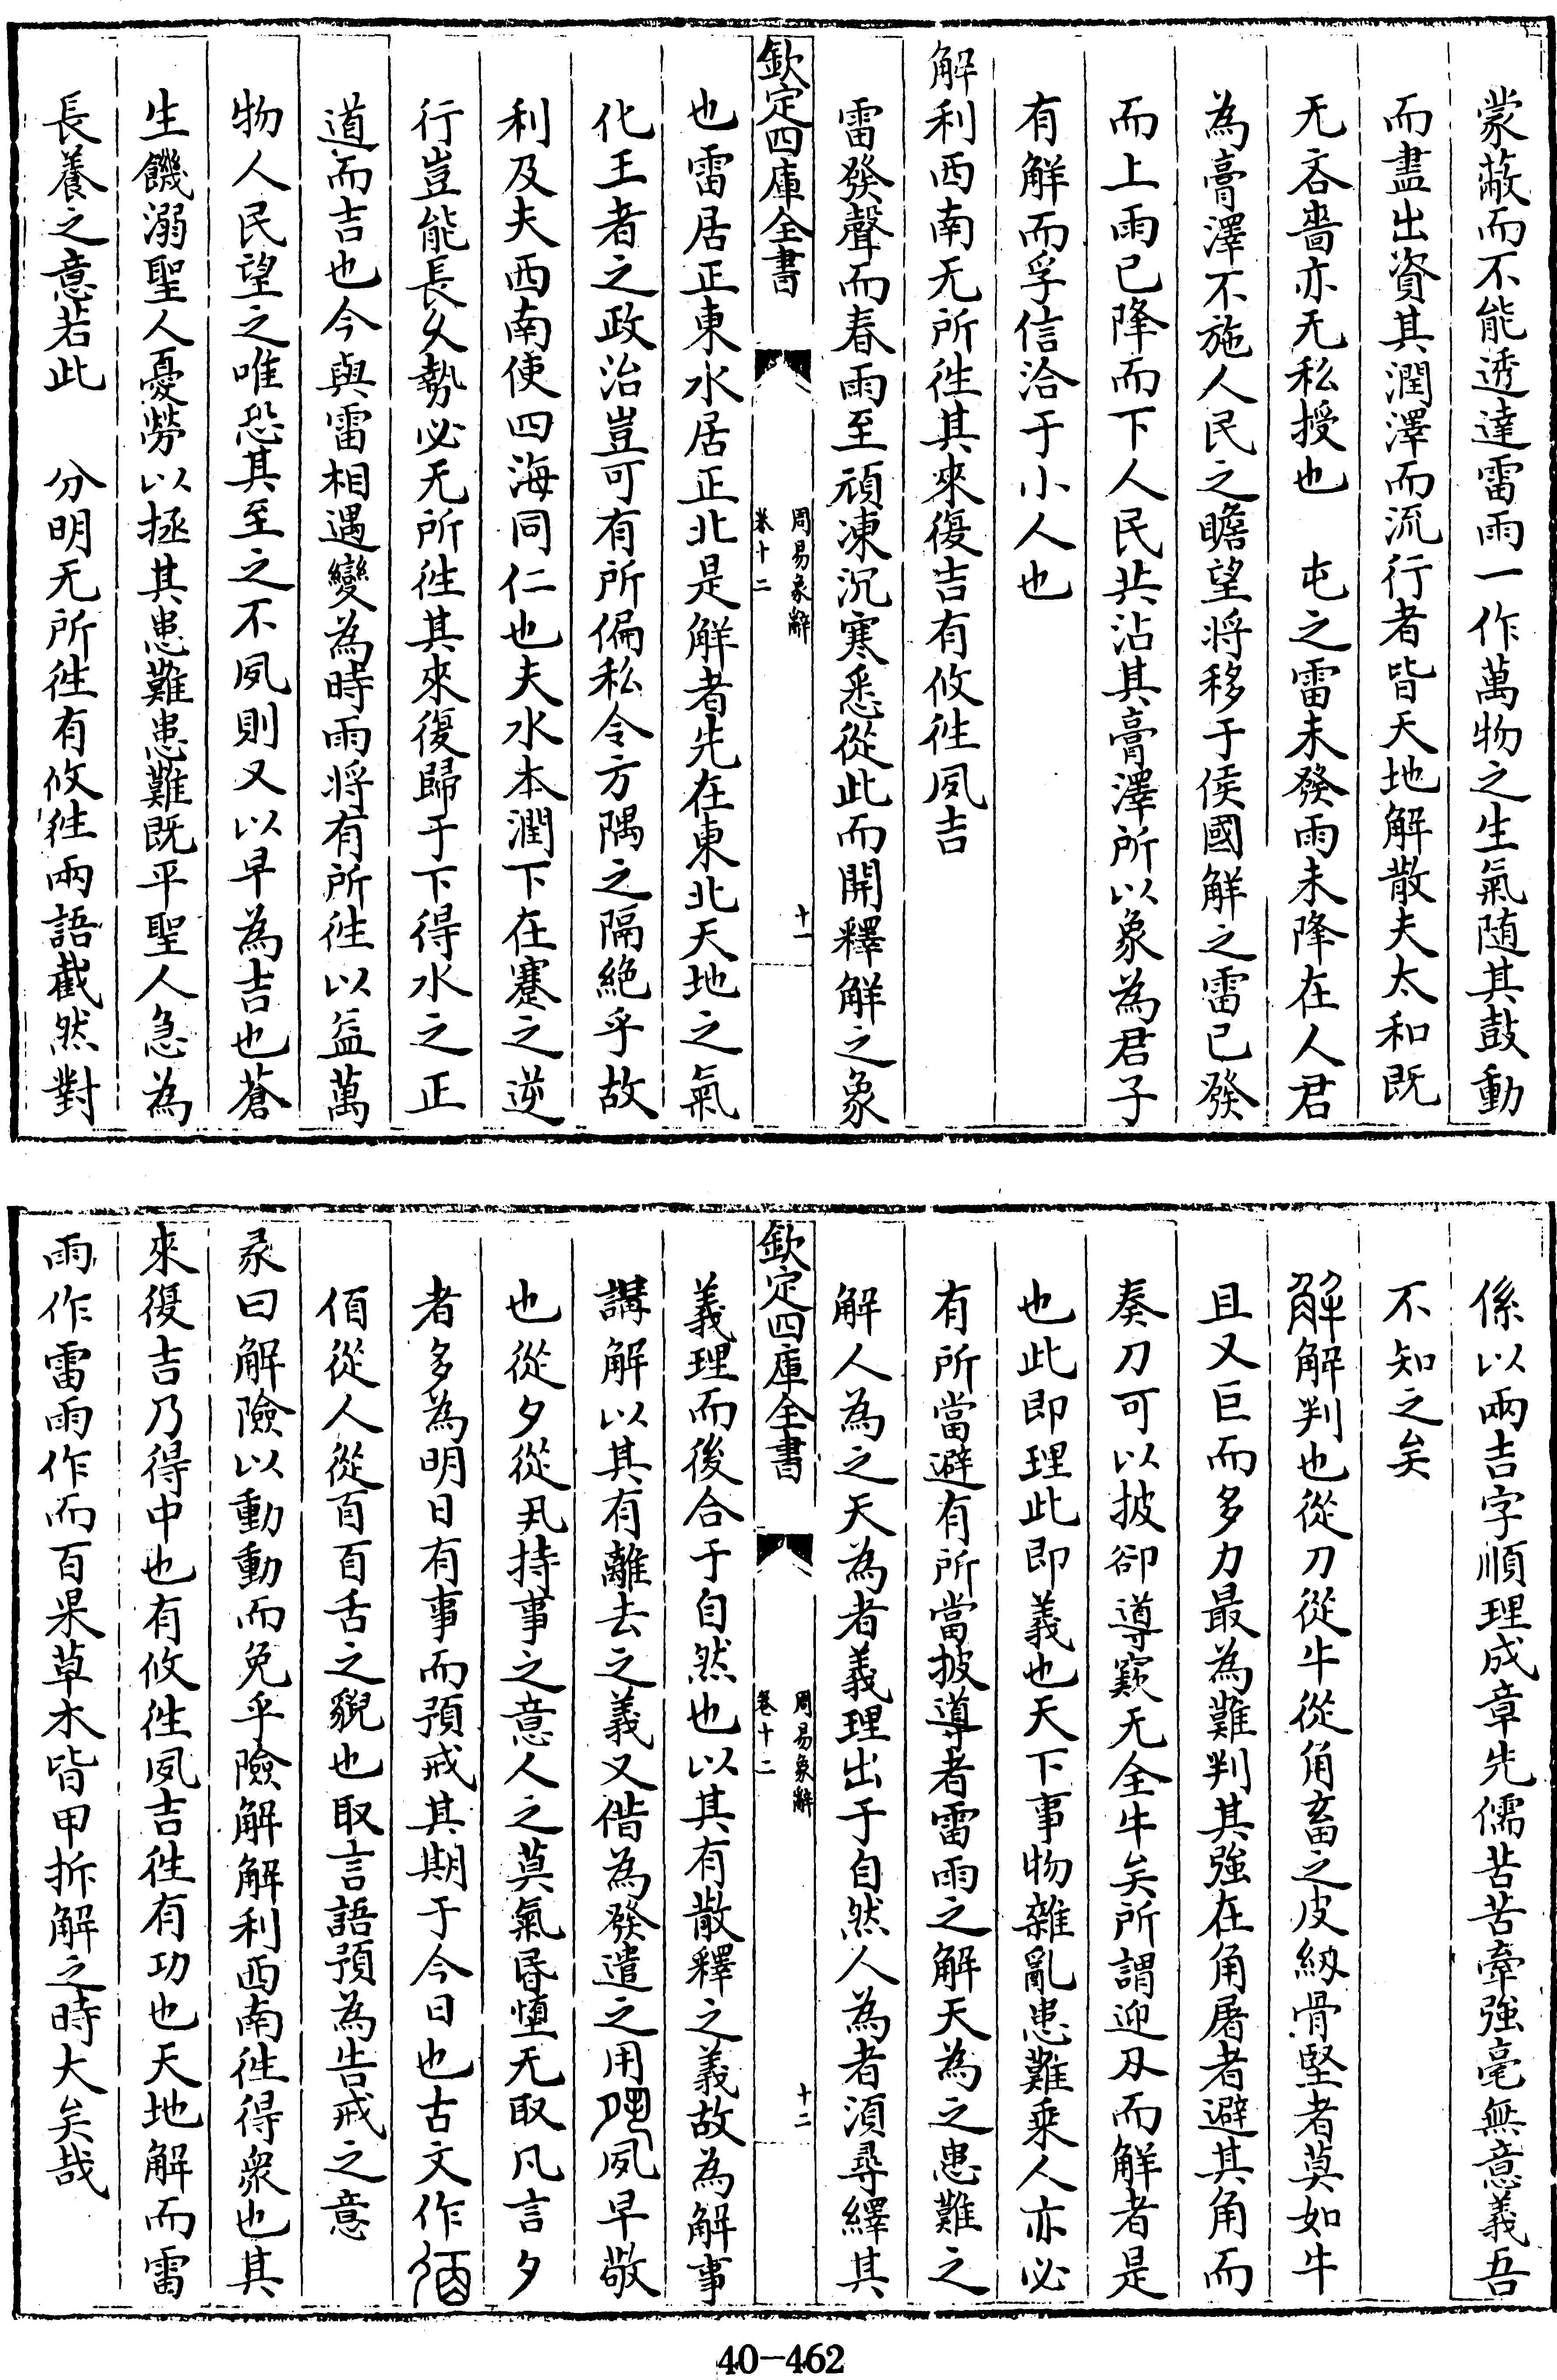 蒙蔽而不能透達雷雨一作萬物之生氣随其鼓動
而盡出資其潤澤而流行者皆天地解散夫太和既
无吝嗇亦无私授也　屯之雷未發雨未降在人君
為膏澤不施人民之瞻望将移于侯國解之雷已發
而上雨已降而下人民共沾其膏澤所以象為君子
有解而孚信洽于小人也
解利西南无所徃其來復吉有攸徃夙吉
雷發聲而春雨至頑凍沉寒悉從此而開釋解之象
欽定四庫全書
周易象辭
卷十二
十一
也雷居正東水居正北是解者先在東北天地之氣
化王者之政治豈可有所偏私令方隅之隔絶乎故
利及夫西南使四海同仁也夫水本潤下在蹇之逆
行豈能長久勢必无所徃其來復歸于下得水之正
道而吉也今與雷相遇變為時雨将有所徃以益萬
物人民望之唯恐其至之不夙則又以早為吉也蒼
生饑溺聖人憂勞以拯其患難患難既平聖人急為
長養之意若此　分明无所徃有攸徃兩語截然對
係以兩吉字順理成章先儒苦苦牽強毫無意義吾
不知之矣
解解判也從刀從牛從角畜之皮紉骨堅者莫如牛
且又巨而多力最為難判其強在角屠者避其角而
奏刀可以披卻導窾无全牛矣所謂迎刃而解者是
也此即理此即義也天下事物雜亂患難乘人亦必
有所當避有所當披導者雷雨之解天為之患難之
解人為之天為者義理出于自然人為者湏尋繹其
欽定四庫全書
周易象辭
卷十二
十二
義理而後合于自然也以其有散釋之義故為解事
講解以其有離去之義又借為發遣之用夙早敬
也從夕從丮持事之意人之莫氣昏惰无取凡言夕
者多為明日有事而預戒其期于今日也古文作
佰從人從百百舌之貌也取言語預為告戒之意
彖曰解險以動動而免乎險解解利西南徃得衆也其
來復吉乃得中也有攸徃夙吉徃有功也天地解而雷
雨作雷雨作而百果草木皆甲拆解之時大矣哉
40-462